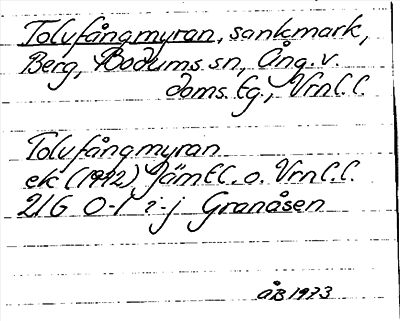 Tolvfångmyran, sankmark,
Berg, Bodums sn, Ång. v.
doms. fg., Vrnl. l.
Tolvfångmyran
ek (1942) Jämtl. o. Vrnl. l.
21G 0-1 i-j Granåsen
ÅB 1973